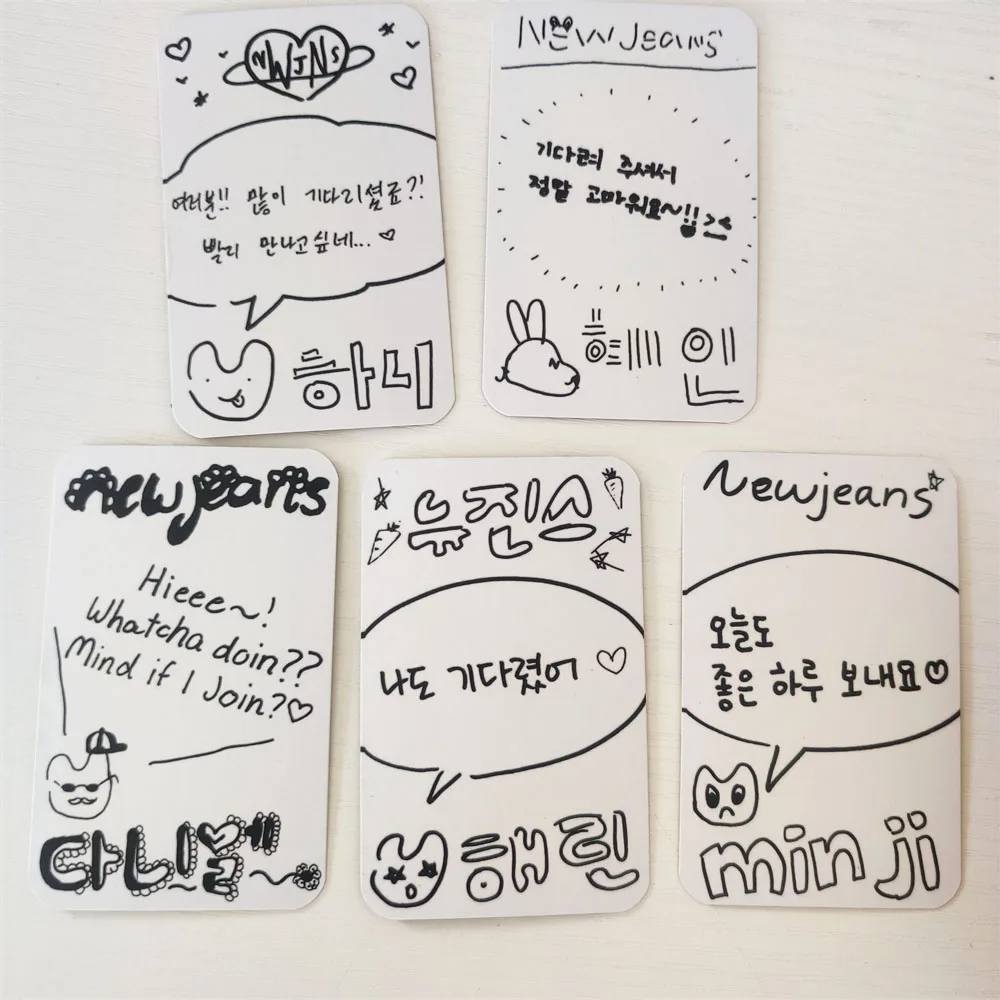 NWJNS
여러분!! 많이 기다리셨죠?!
빨리 만나고 싶네... ♡
하니
NEW Jeans
기다려 주셔서
정말 고마워요~!! ><
혜인
new jeans
Hieee~!
Whatcha doin??
Mind if I Join?♡
다니엘
뉴진스
나도 기다렸어 ♡
해린
Newjeans
오늘도
좋은 하루 보내요♡
minji